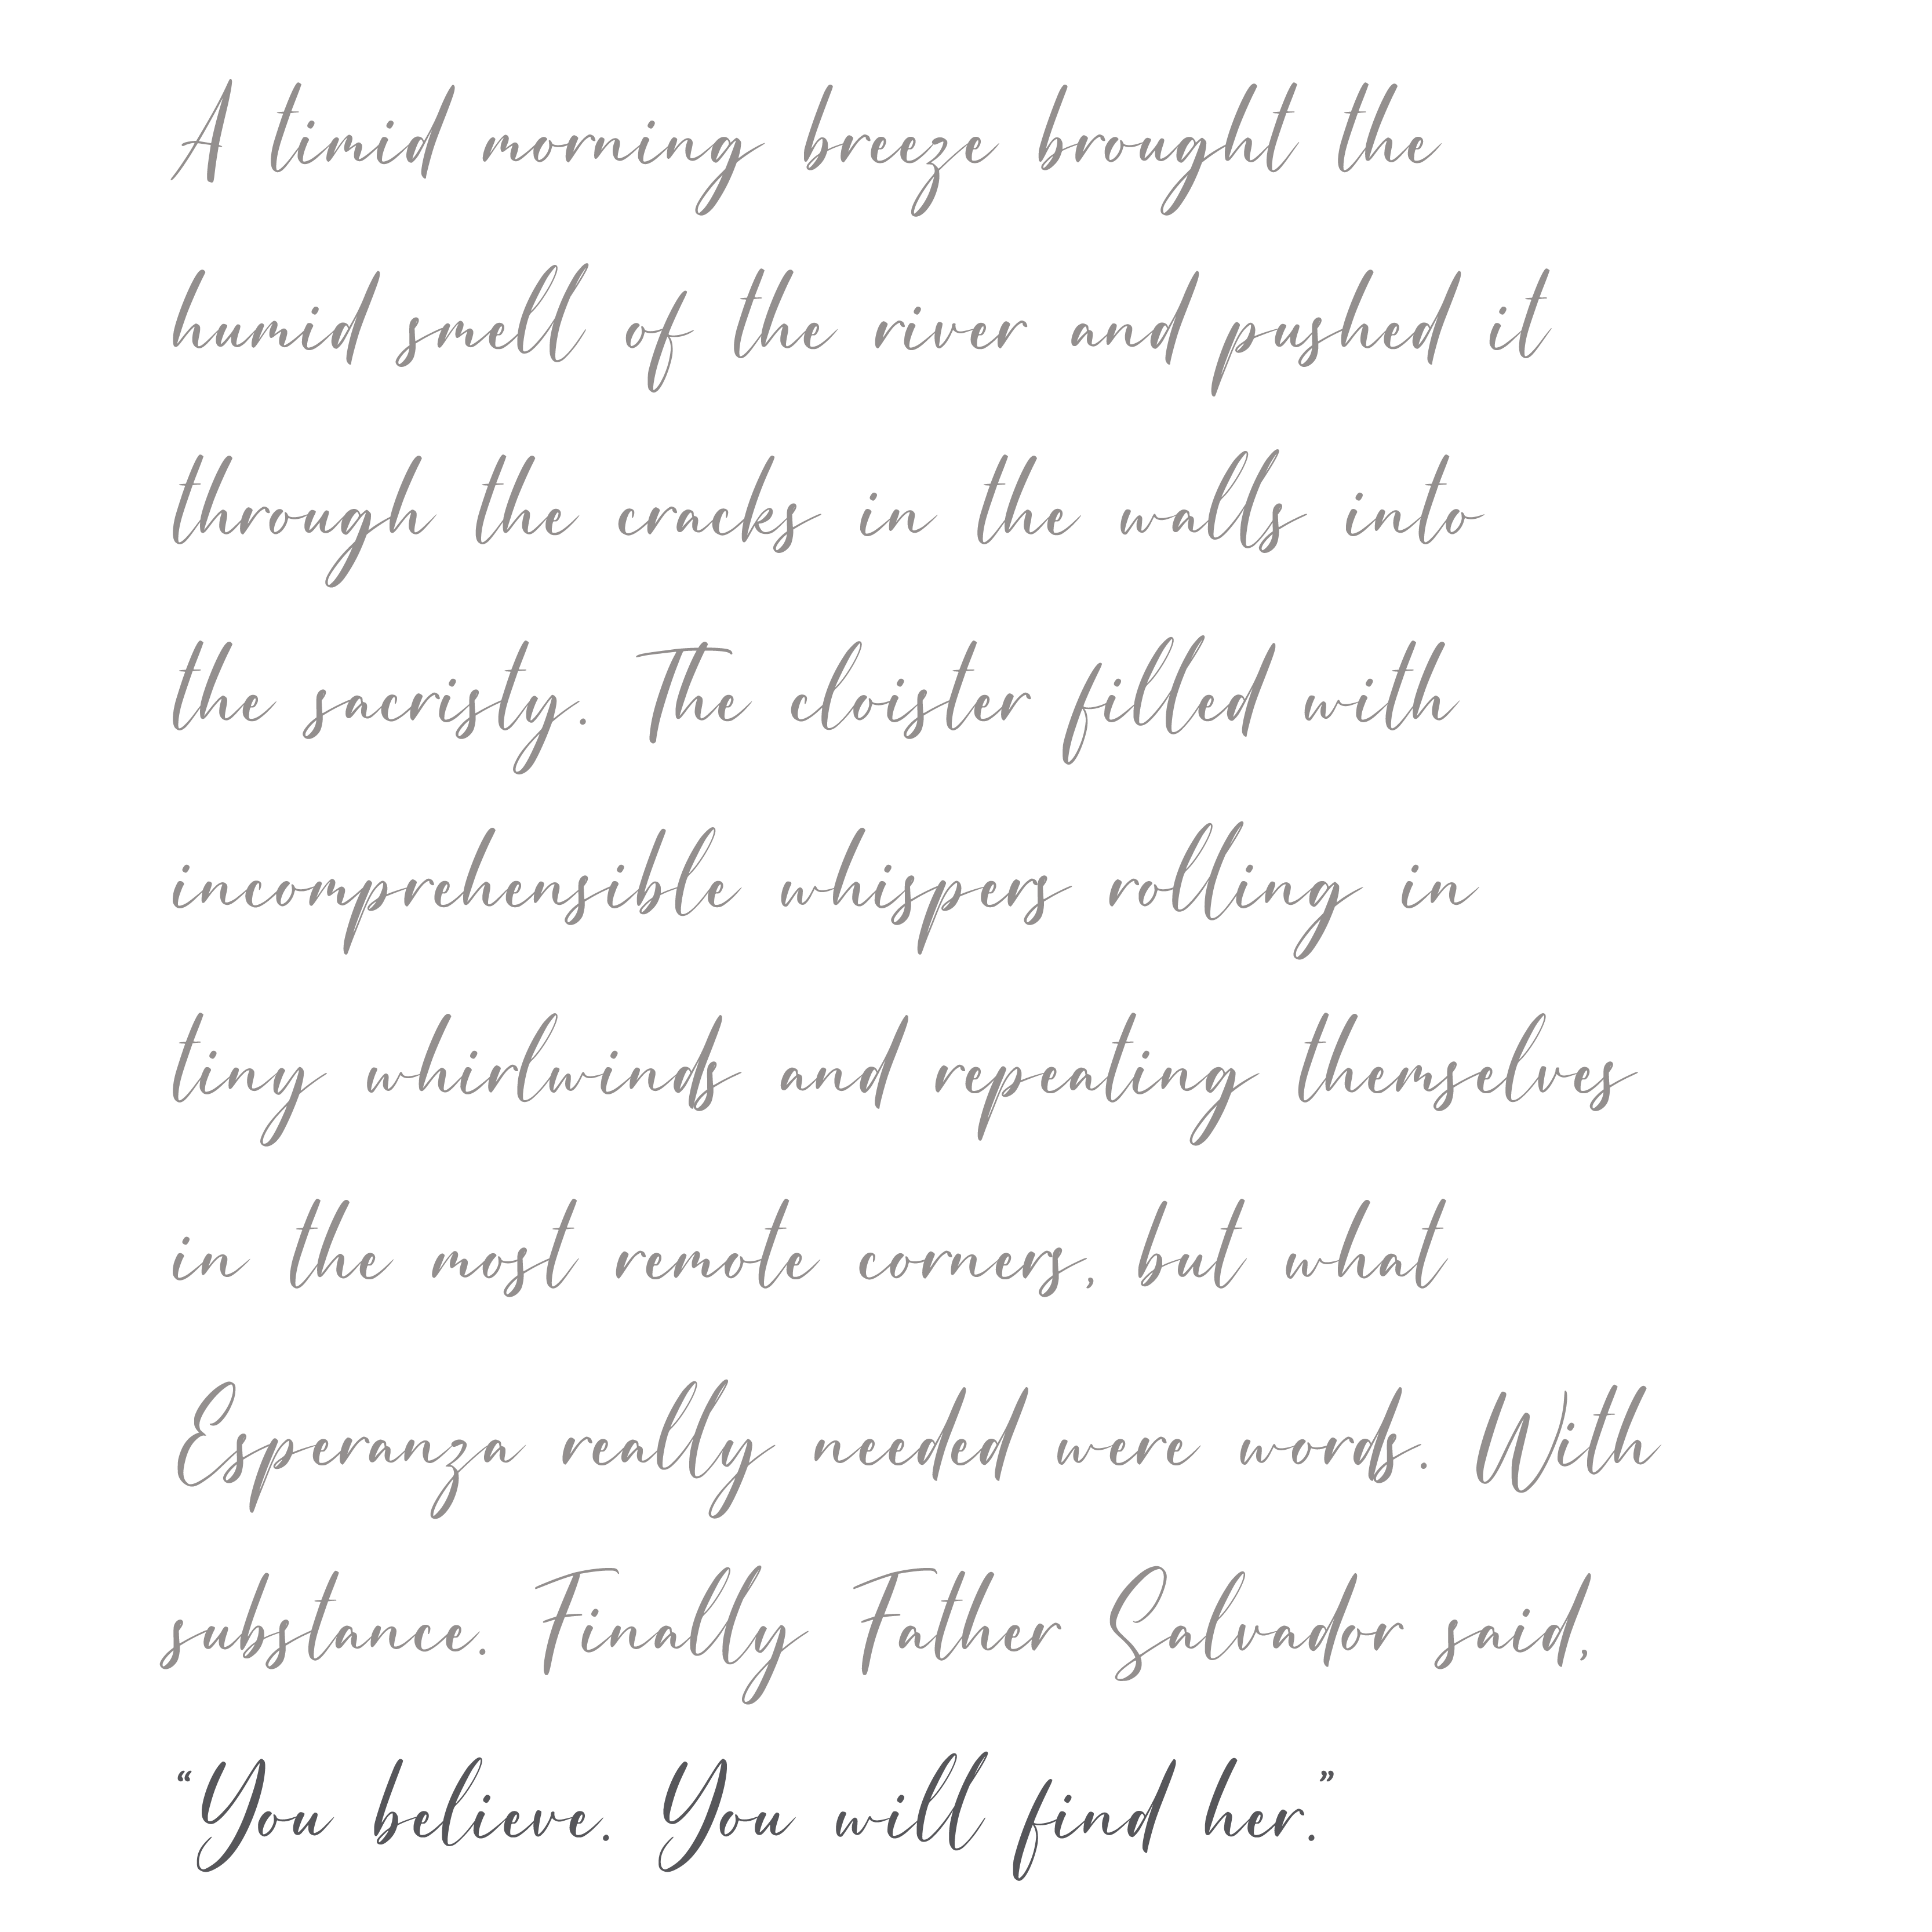 A timid morning breeze brought the
humid smell of the river and pushed it
through the cracks in the walls into
the sacristy. The cloister filled with
incomprehensible whispers rolling in
tiny whirlwinds and repeating themselves
in the most remote corners, but what
Esperanza really needed were words. With
substance. Finally Father Salvador said,
“You believe. You will find her.”